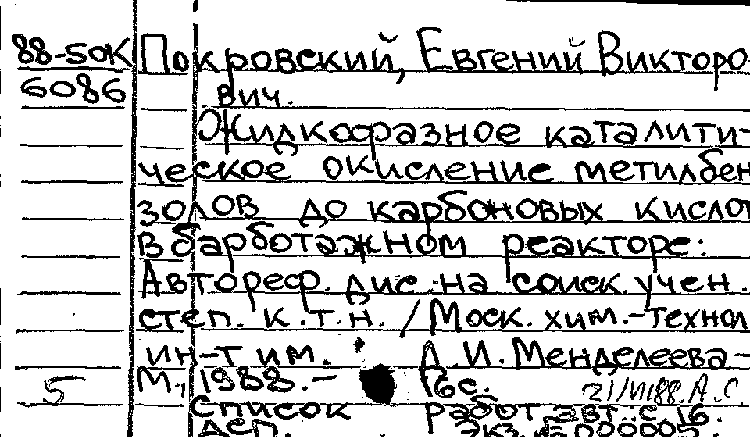 88-50К Покровский, Евгений Викторо-
6086 вич.
Жидкофазное каталити-
ческое окисление метилбен
золов до карбоновых кислот
в барботажном реакторе:
Автореф. дис. на соиск. учен.
степ. к.т.н. / Моск. хим.-технол
ин-т им. Д.И. Менделеева -
5 М., 1988. - 16с. 21/VI 88. А.С
Список работ авт.: с. 16.
ДСП. Экз.